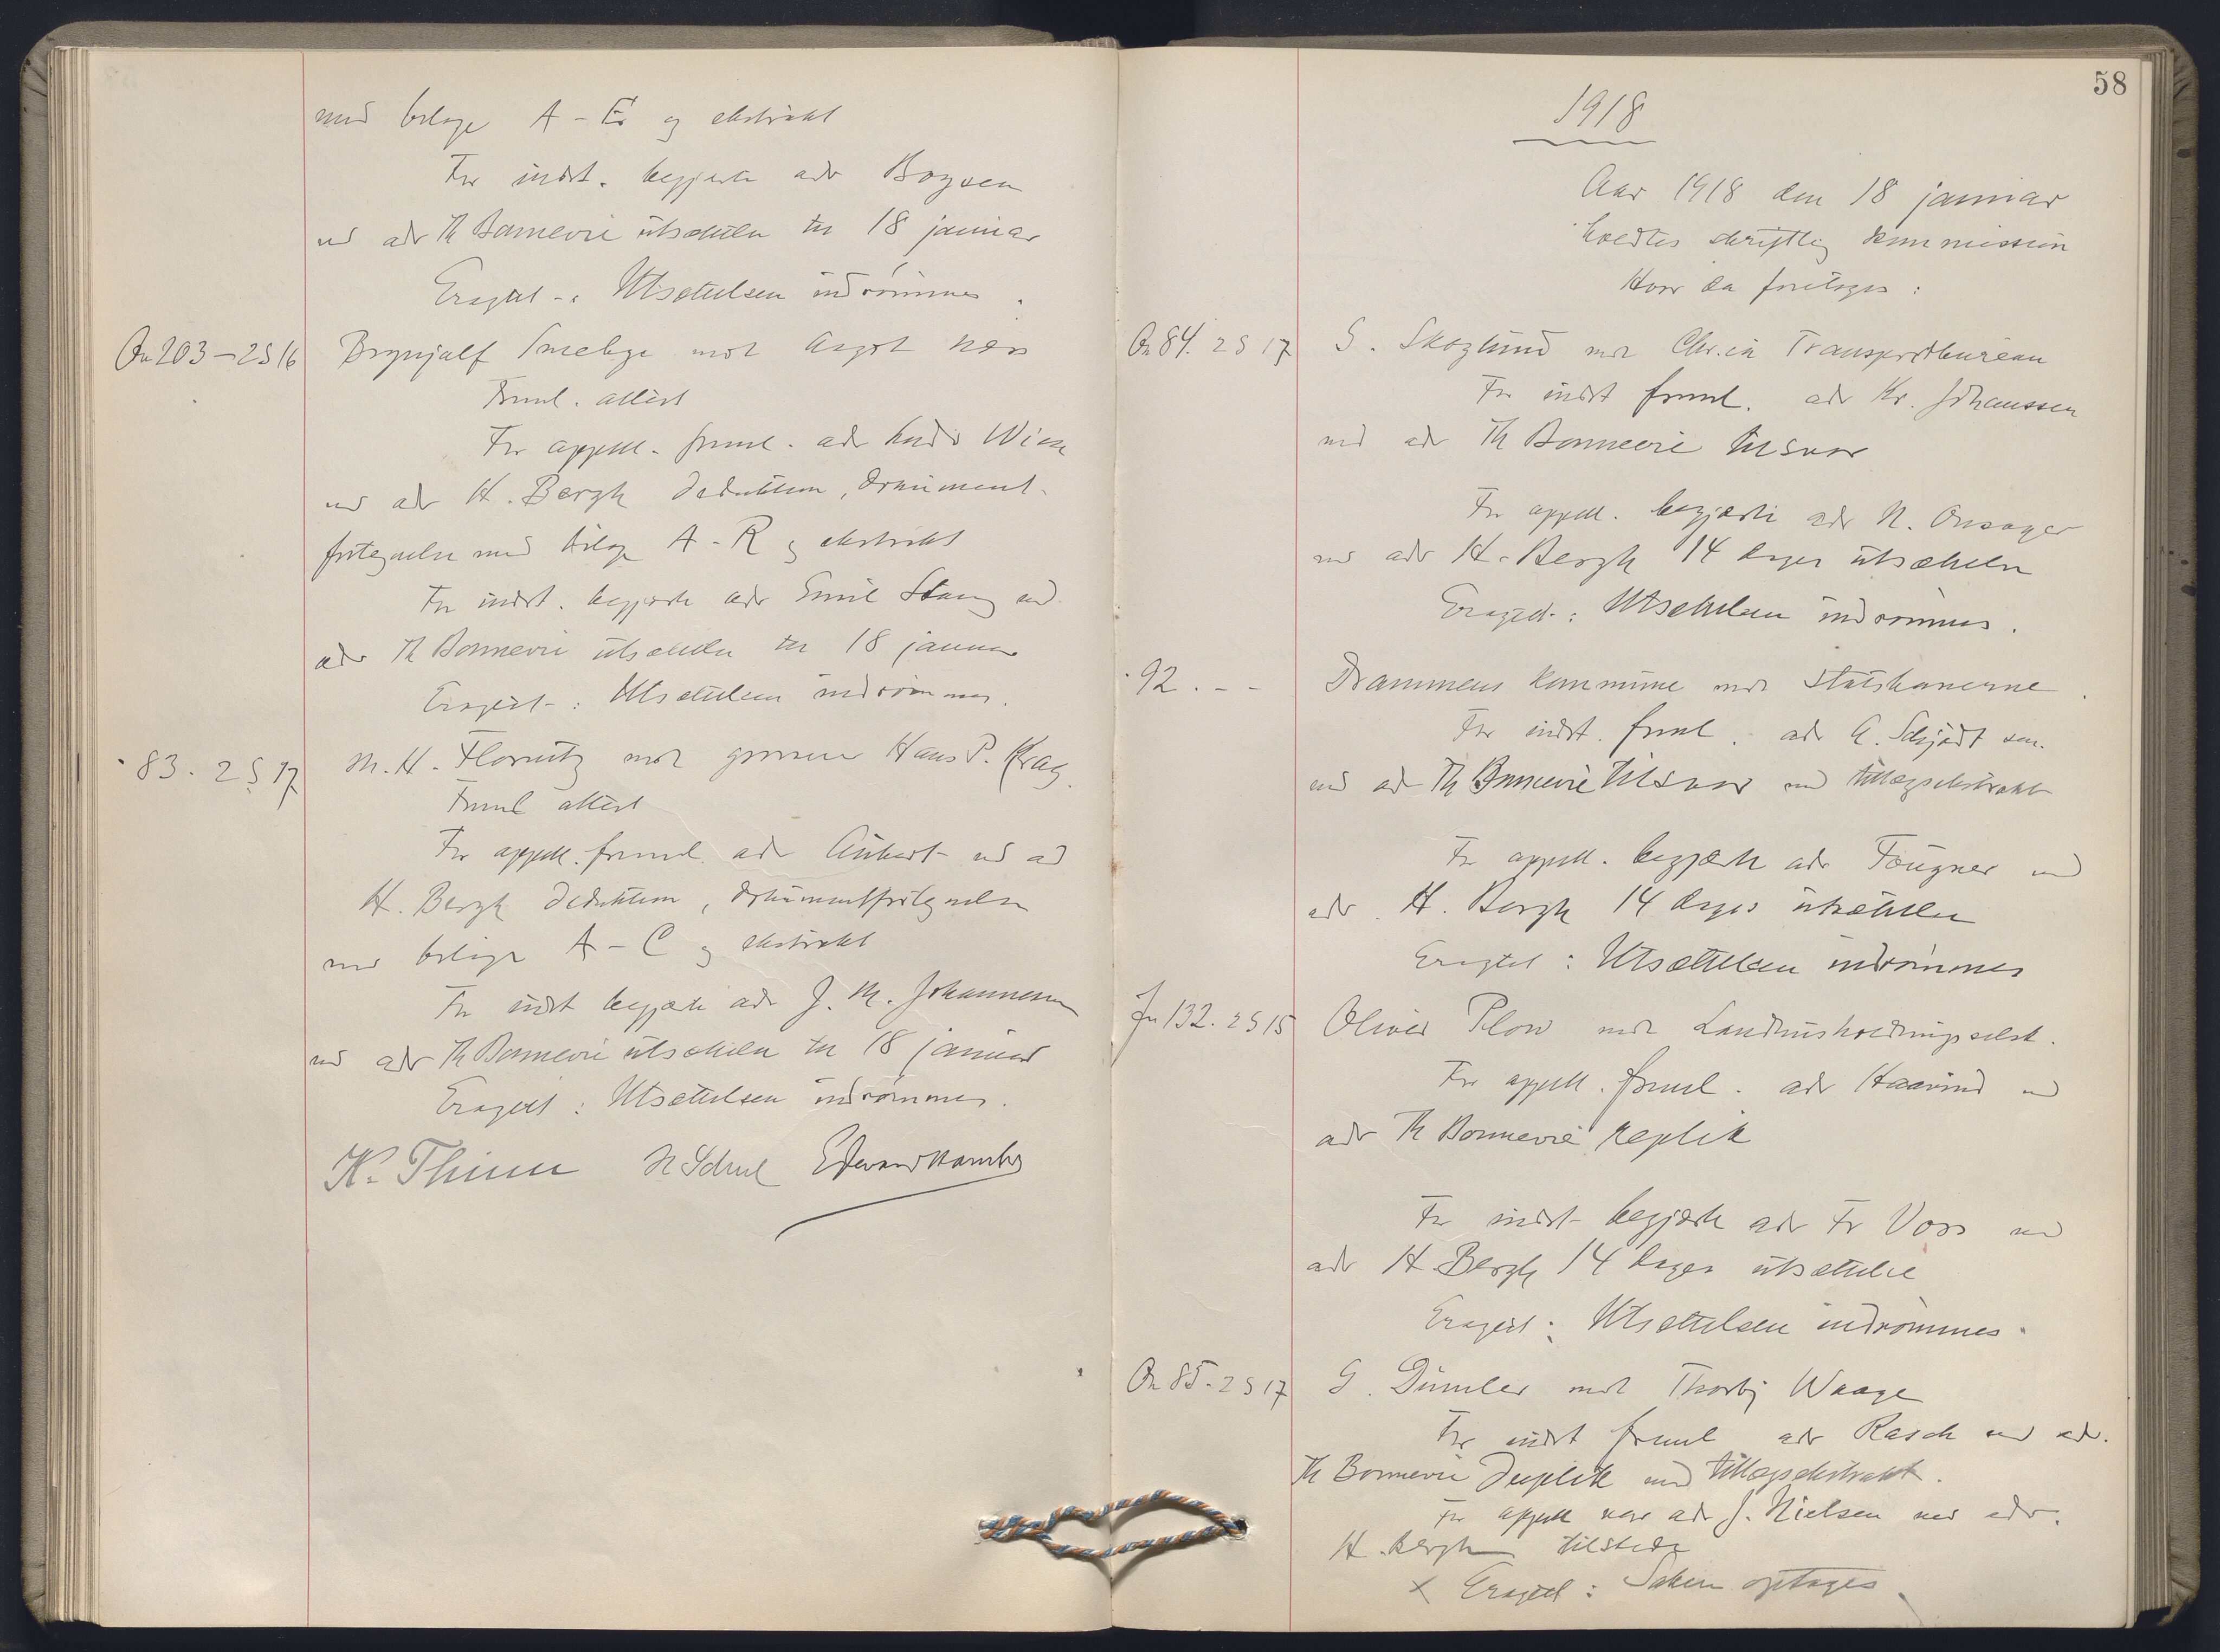 med bilage A - E og ekstrakt
For indst. begjærte adv Boysen
ved adv Th Bonnevie utsættelse til 18 januar
Eragtet -: Utsættelsen indrømmes.
On 203 - 2 S 16 Brynjulf mot Aagot Næss
Fremt. attest
For appell. fremt. adv Wiese
ved adv H. Bergh deduktion, dokument-
fortegnelse med bilage A - R og ekstrakt
For indst. begjærte adv Emil Stang ved
adv Th Bonnevie utsættelse til 18 januar
Eragtet -: Utsættelsen indrømmes.
" 83. 2 S 17 M. H. mot grosserer Hans P. Krag.
Fremt attest
For appell. fremt. adv Aubert ved ad
H. Bergh deduktion, dokumentfortegnelse
med bilage A - C og ekstrakt
For indst begjærte adv J. M. Johannesen
ved adv Th Bonnevie utsættelse til 18 januar
Eragtet : Utsættelsen indrømmes.
K. Thinn N Scheel Edvard Hambro
58
1918
Aar 1918 den 18 januar
holdtes skriftlig kommission
Hvor da foretoges :
On 84. 2 S 17 S. Skoglund mot Chr.ia Transportbureau
For indst fremt. adv Kr. Johanssen
ved adv Th Bonnevie tilsvar
For appell. begjærte adv N. Onsager
ved adv H. Bergh 14 dages utsættelse
Eragtet -: Utsættelsen indrømmes.
" 92. - - Drammens kommune mot Statsbanerne.
For indst. fremt. adv A. Schjødt sen.
ved adv Th Bonnevie tilsvar med tillægsekstrakt
For appell. begjærte adv Fougner ved
adv. H. Bergh 14 dages utsættelse
Eragtet : Utsættelsen indrømmes
Jn 132. 2 S 15 Oliver Plow mot Landhusholdningsselsk.
For appell. fremt. adv Haavind ved
adv Th Bonnevie replik
For indst- begjærte adv Fr Voss ved
adv H Bergh 14 dages utsættelse
Eragtet : Utsættelsen indrømmes.
On 85. 2 S 17 G. mot Thorbj Waage
For indst fremt adv Rasch ved adv.
Th Bonnevie duplik med tillægsekstrakt.
For appell var adv J. Nielsen ved adv.
H. Bergh tilstede
x Eragtet : Saken optages.